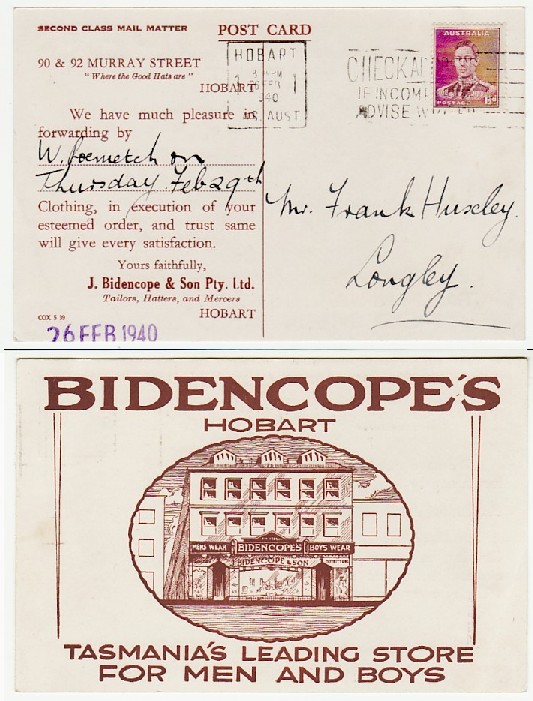 SECOND CLASS MAIL MATTER
POST CARD
90 & 92 MURRAY STREET
"Where the Good Hats are"
HOBART
We have much pleasure in
forwarding by
on
Thursday Feb 29th
Clothing, in execution of your
esteemed order, and trust same
will give every satisfaction.
Yours faithfully,
J. Bidencope & Son Pty. Ltd.
Tailors, Hatters, and Mercers
HOBART
COX S 39
26 FEB 1940
HOBART
FEB
940
AUST
CHECK
IF INCOM
ADVISE
AUSTRALIA
POSTAGE
Mr. Frank Huxley.
Longley.
BIDENCOPE'S
HOBART
MENS WEAR
BIDENCOPE'S
BOYS WEAR
BIDENCOPE & SON
TASMANIA'S LEADING STORE
FOR MEN AND BOYS